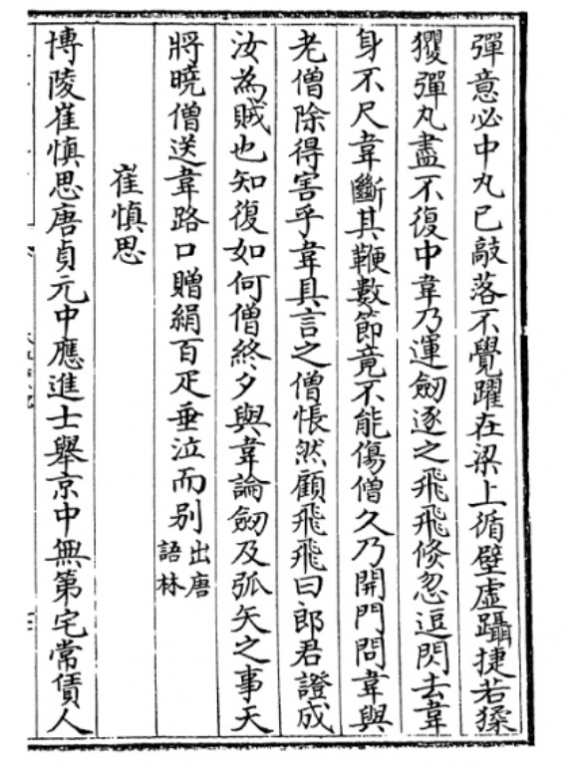 彈意必中丸已敲落不覺躍在梁上循壁虛躡捷若猱
玃彈丸盡不復中韋乃運劒逐之飛飛倐忽逗閃去韋
身不尺韋斷其鞭數節竟不能傷僧久乃開門問韋與
老僧除得害乎韋具言之僧悵然顧飛飛曰郎君證成
汝為賊也知復如何僧終夕與韋論劒及弧矢之事天
將曉僧送韋路口贈絹百疋垂泣而别出唐語林
崔慎思
博陵崔慎思唐貞元中應進士舉京中無第宅常賃人